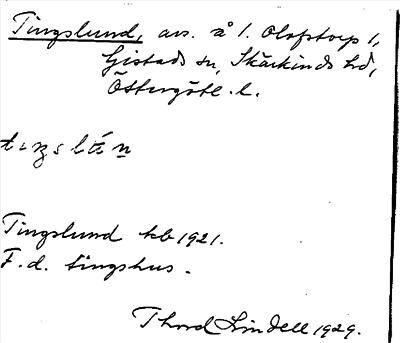 Tingslund, avs. å 1. Olofstorp 1,
Gistads sn, Skärkinds hd,
Östergötl. l.
Tingslund kb 1921.
F. d. tingshus.
Thord Lindell 1929.